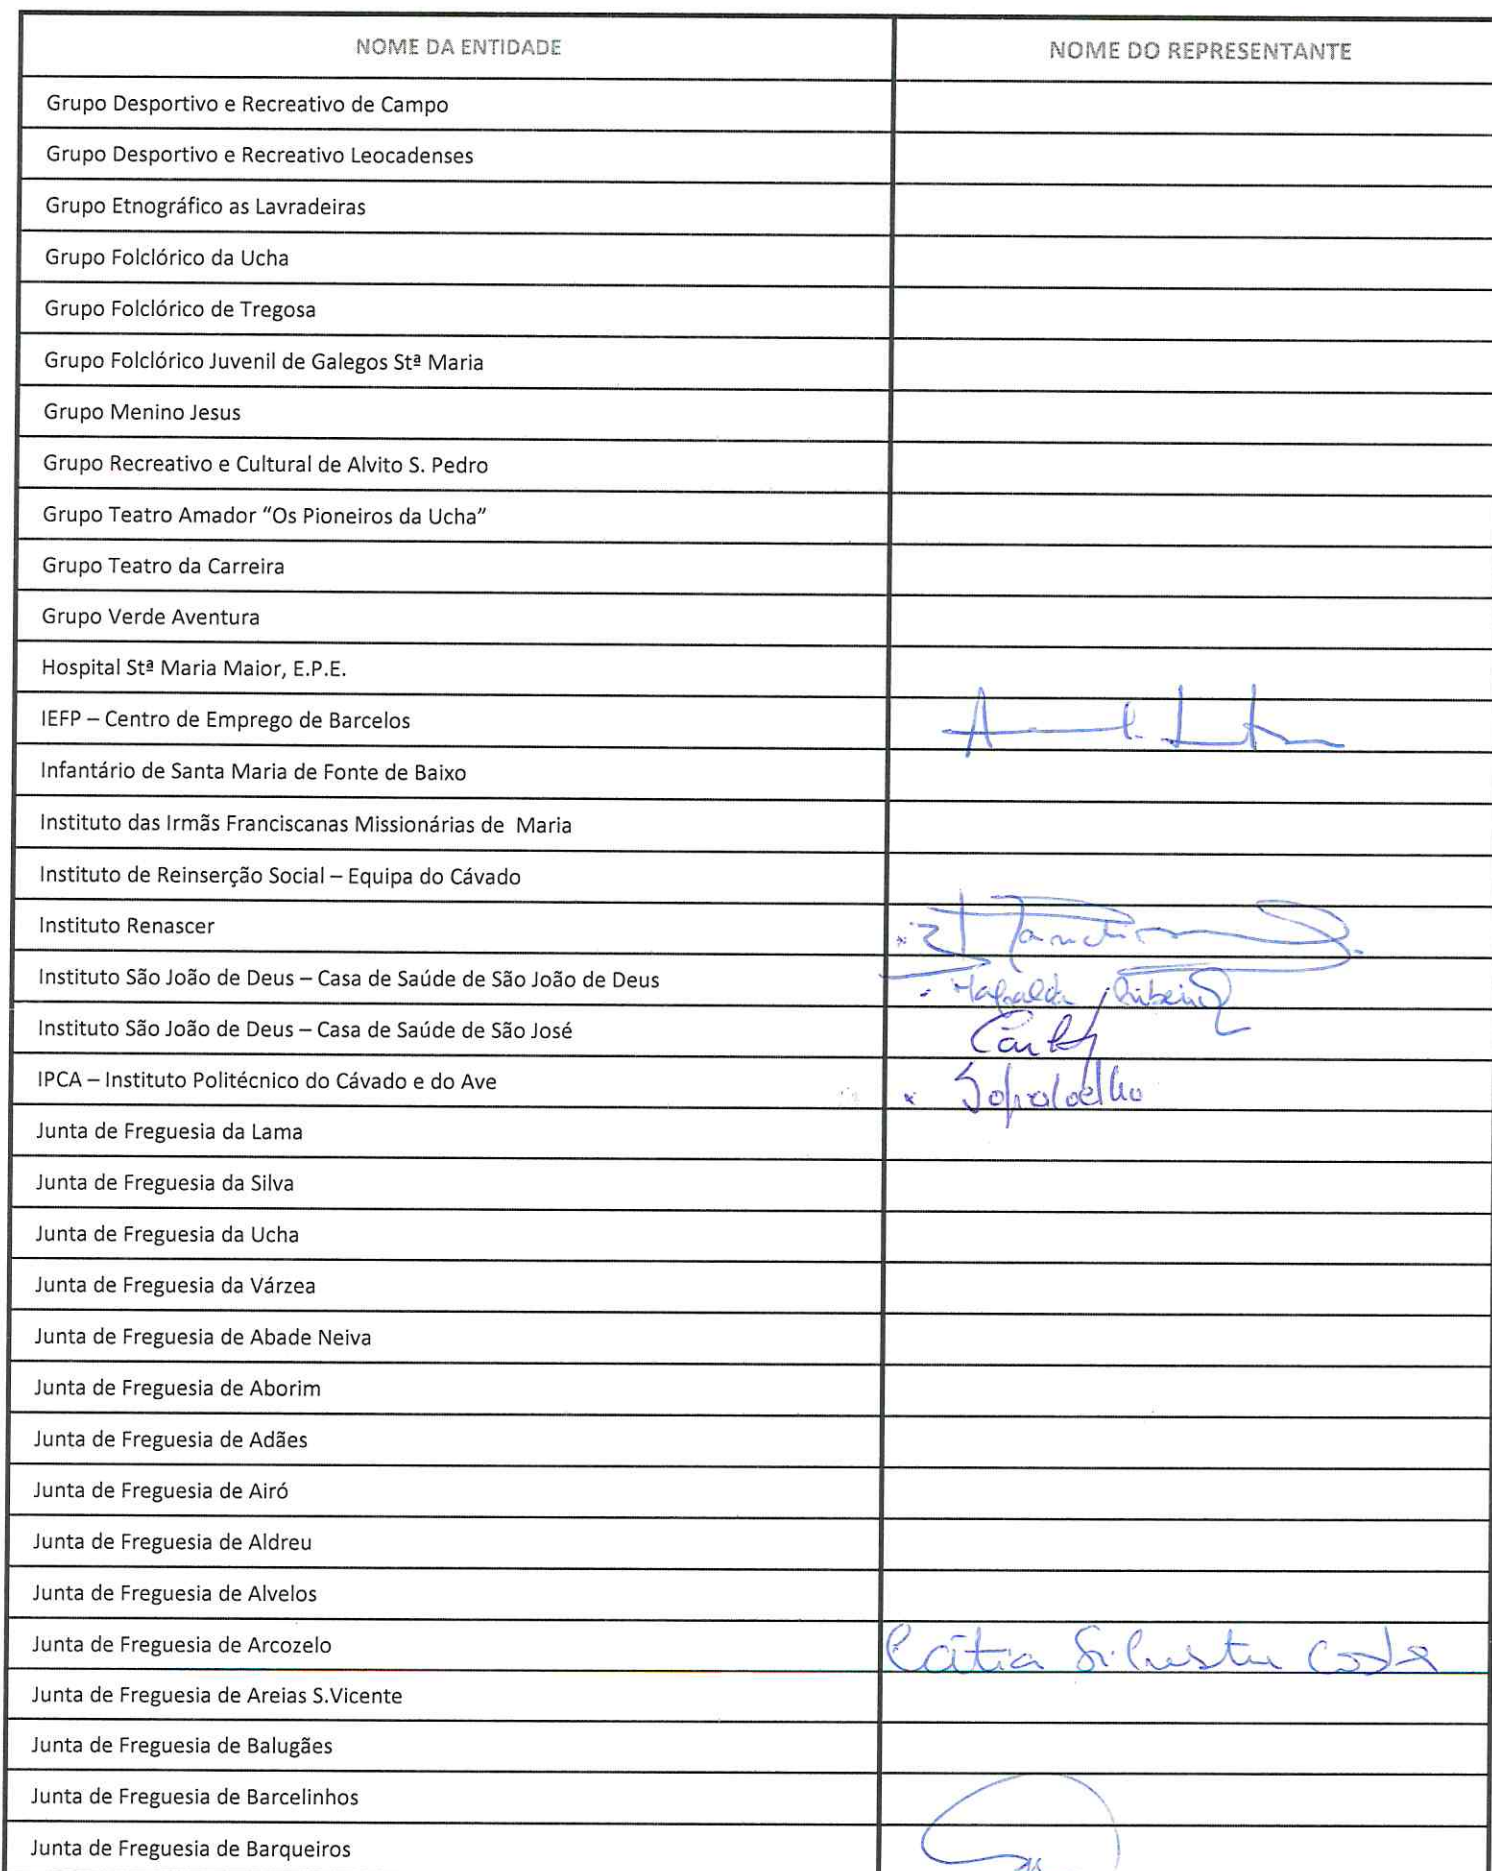 NOME DA ENTIDADE NOME DO REPRESENTANTE
Grupo Desportivo e Recreativo de Campo
Grupo Desportivo e Recreativo Leocadenses
Grupo Etnográfico as Lavradeiras
Grupo Folclórico da Ucha
Grupo Folclórico de Tregosa
Grupo Folclórico Juvenil de Galegos Stª Maria
Grupo Menino Jesus
Grupo Recreativo e Cultural de Alvito S. Pedro
Grupo Teatro Amador “Os Pioneiros da Ucha”
Grupo Teatro da Carreira
Grupo Verde Aventura
Hospital Stª Maria Maior, E.P.E.
IEFP – Centro de Emprego de Barcelos
Infantário de Santa Maria de Fonte de Baixo
Instituto das Irmãs Franciscanas Missionárias de Maria
Instituto de Reinserção Social – Equipa do Cávado
Instituto Renascer
Instituto São João de Deus – Casa de Saúde de São João de Deus Mafalda Ribeiro
Instituto São João de Deus – Casa de Saúde de São José
IPCA – Instituto Politécnico do Cávado e do Ave
Junta de Freguesia da Lama
Junta de Freguesia da Silva
Junta de Freguesia da Ucha
Junta de Freguesia da Várzea
Junta de Freguesia de Abade Neiva
Junta de Freguesia de Aborim
Junta de Freguesia de Adães
Junta de Freguesia de Airó
Junta de Freguesia de Aldreu
Junta de Freguesia de Alvelos
Junta de Freguesia de Arcozelo Cátia Silvestre Costa
Junta de Freguesia de Areias S.Vicente
Junta de Freguesia de Balugães
Junta de Freguesia de Barcelinhos
Junta de Freguesia de Barqueiros